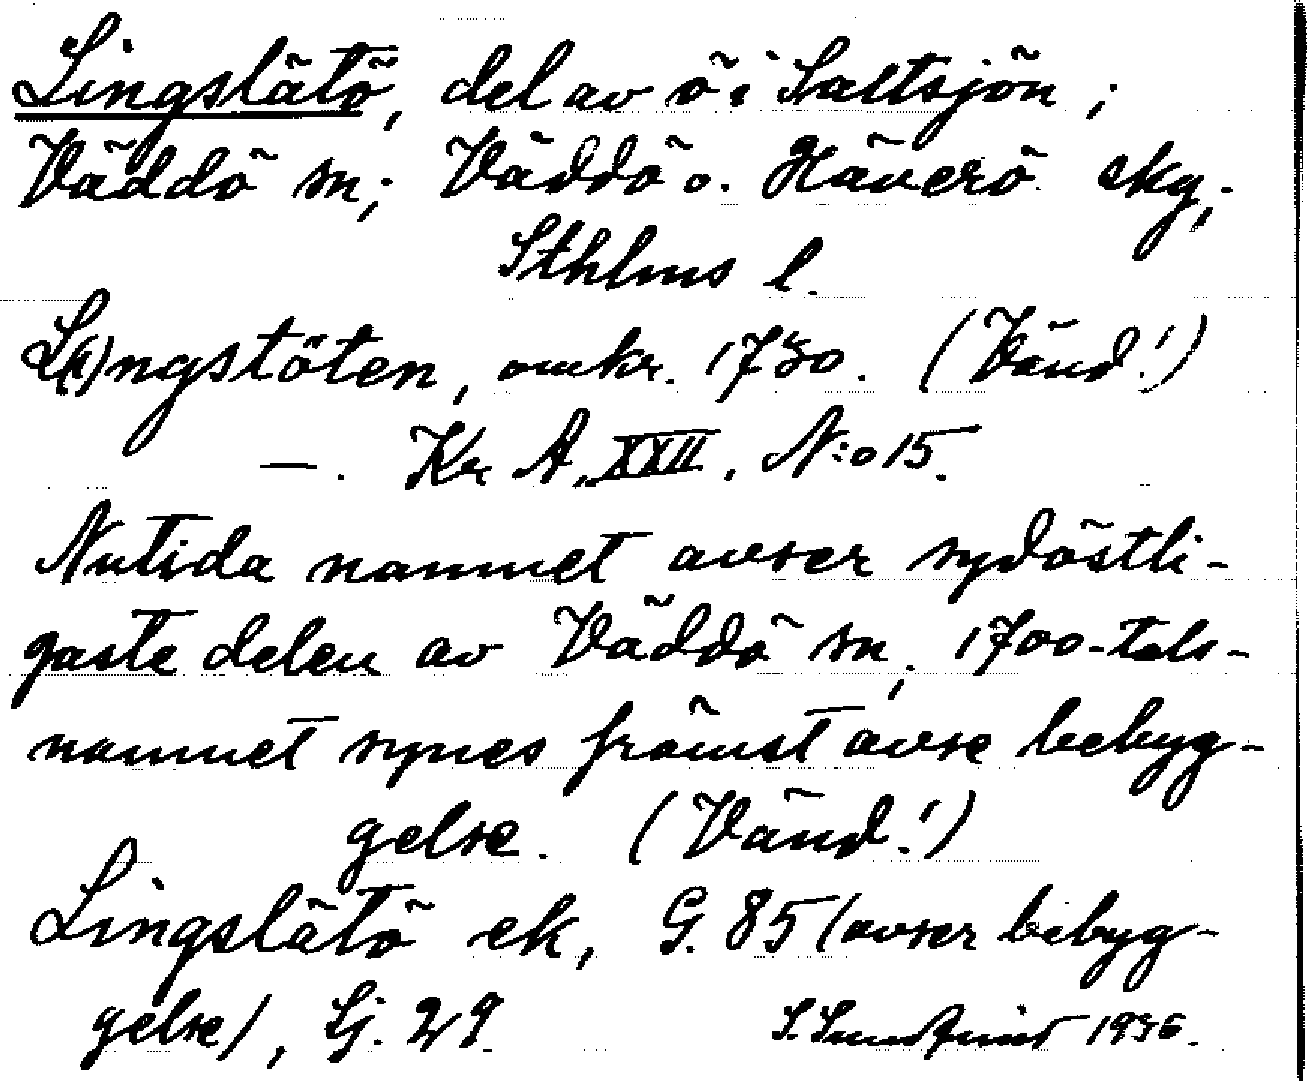 Lingslätö, del av ö i Saltsjön;
Väddö sn; Väddö o. Häverö skg;
Sthlms l.
L(i)ngstöten, omkr. 1730. (Vänd!)
—. Kr A, XXII, N:o 15.
Nutida namnet avser sydöstli-
gaste delen av Väddö sn, 1700-tals-
namnet synes främst avse bebyg-
gelse. (Vänd!)
Lingslätö ek, G. 85 (avser bebyg-
gelse), Lj. 29
S. Sundquist 1936.